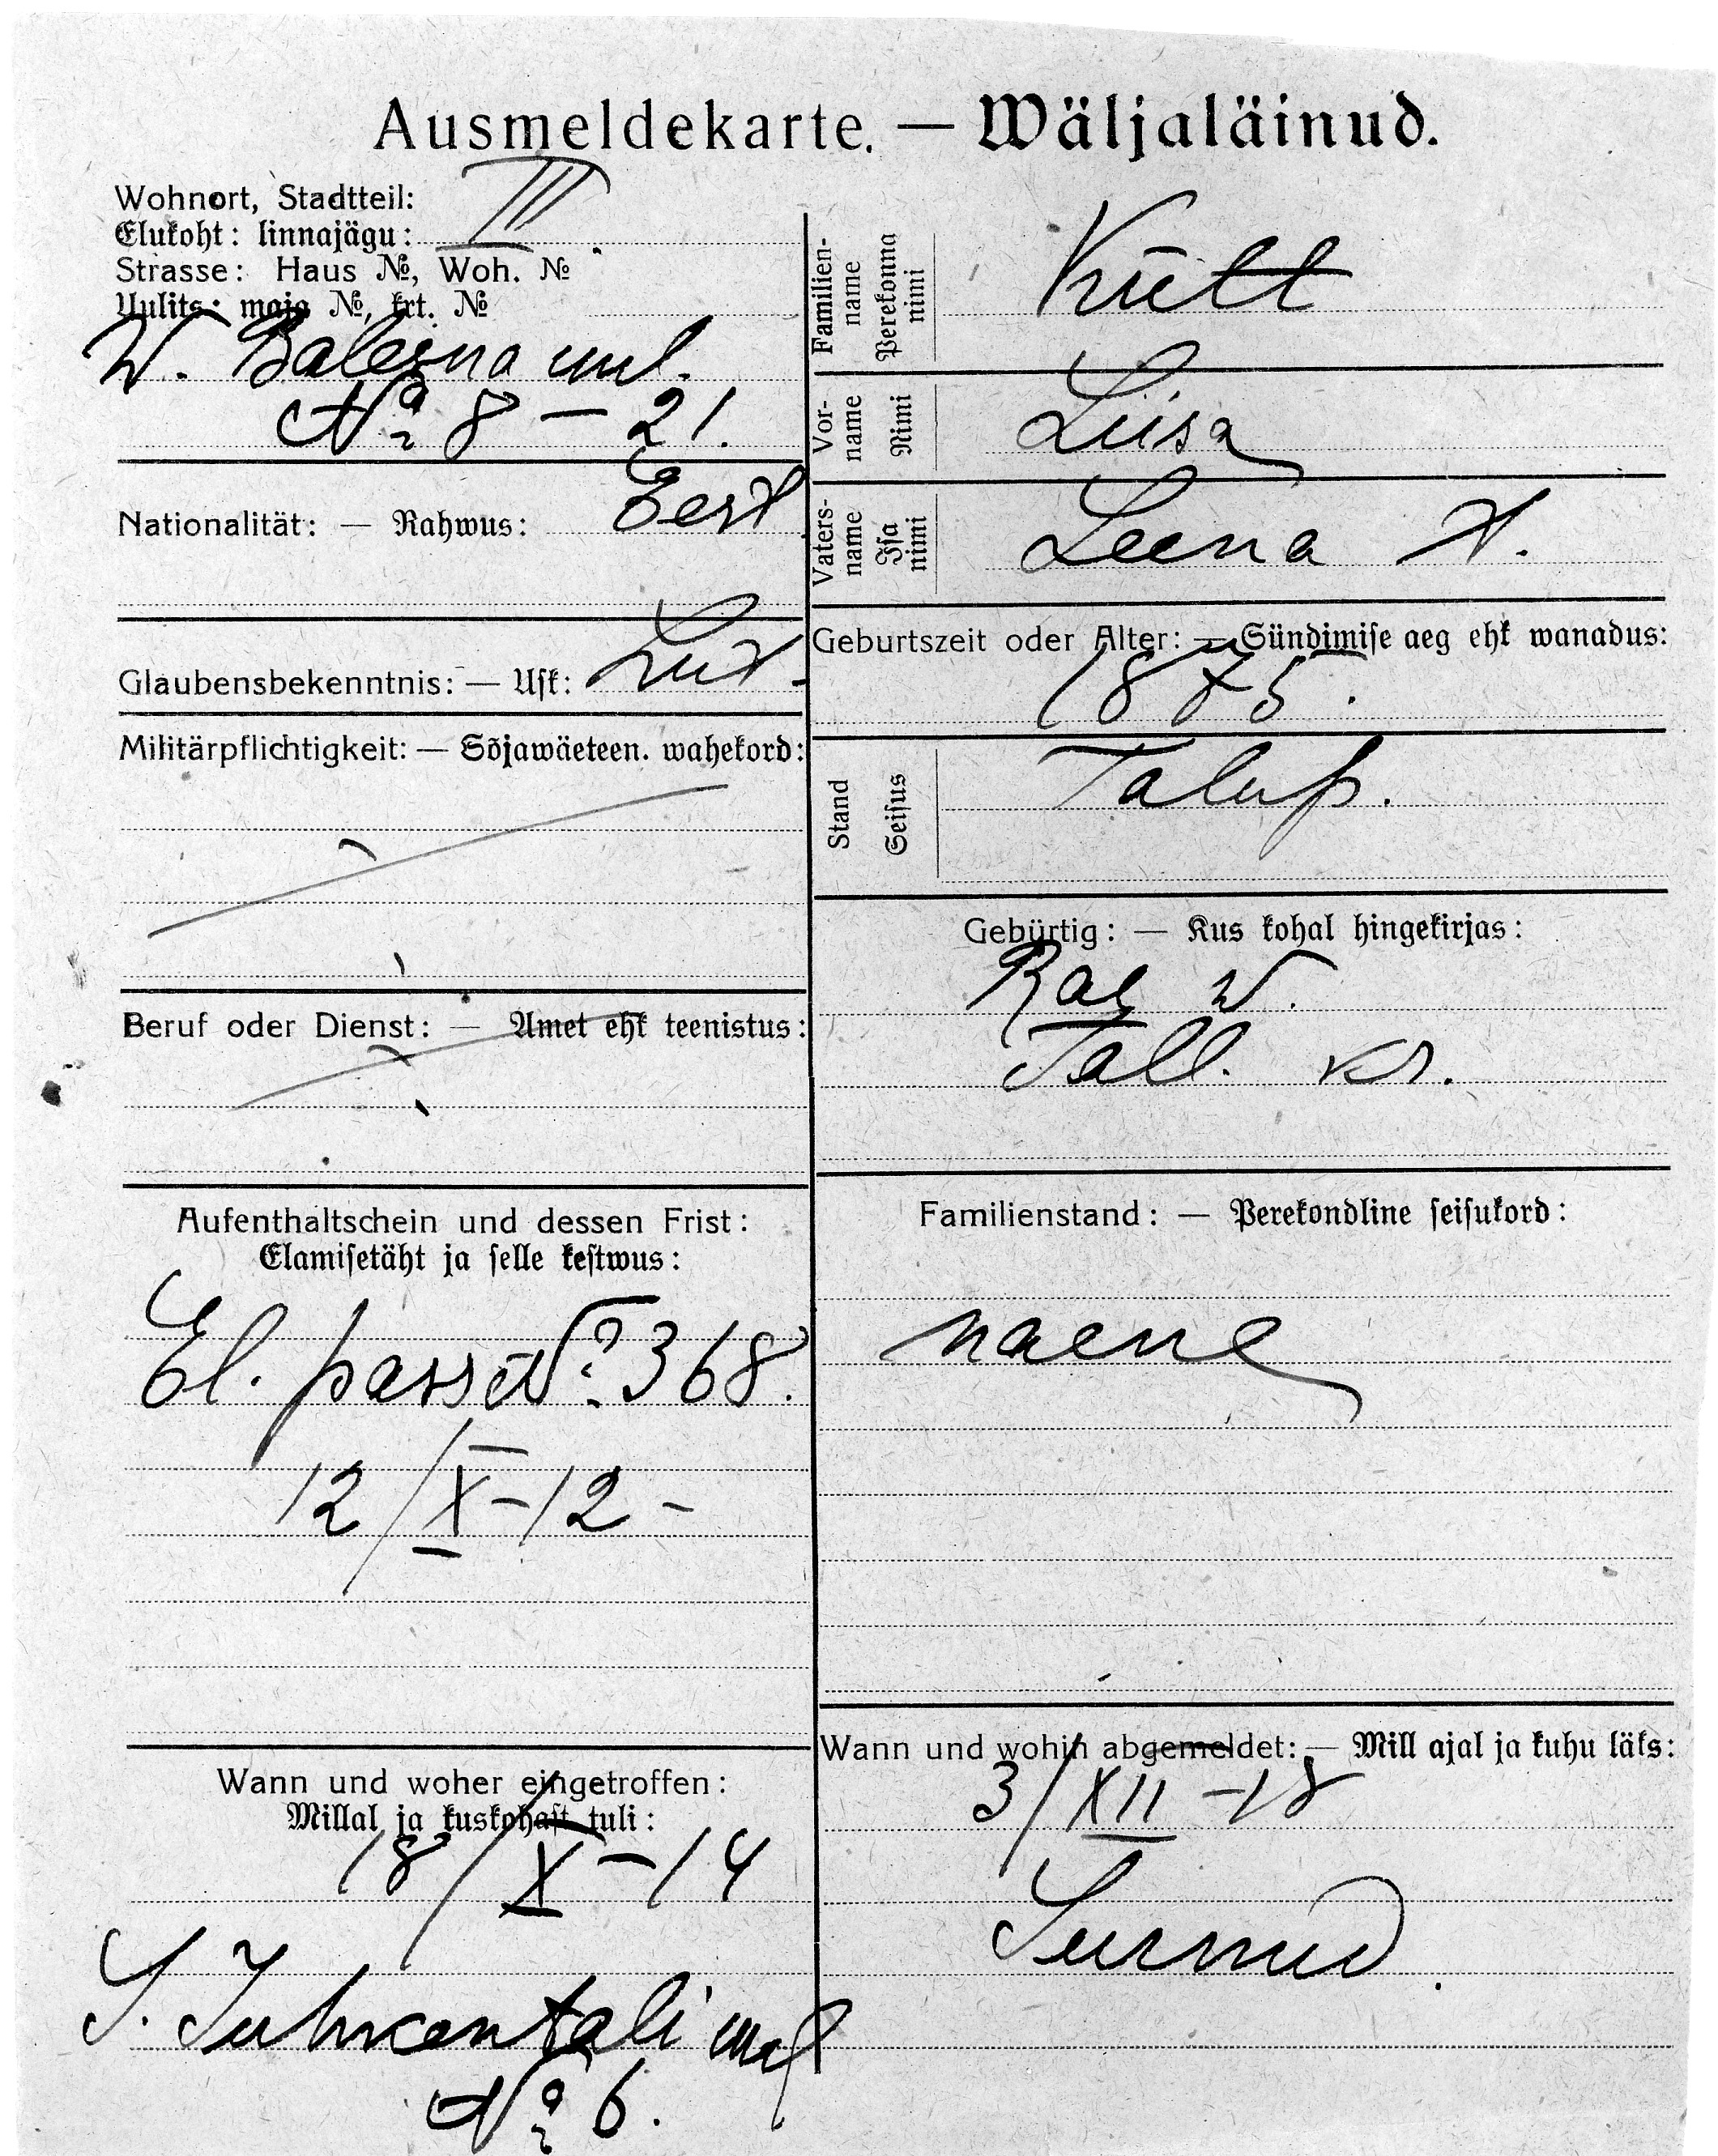 Ausmeldekarte. — Wäljaläinud.
Wohnort, Stadtteil:
Elukoht: linnajägu: III.
Strasse: Haus №, Woh. №
Uulits: maja №, krt. №
W. uul.
№ 8 — 21.
Nationalität: — Rahwus: Eest
Glaubensbekenntnis: — Usk: Lut.
Militärpflichtigkeit: — Sõjawäeteen. wahekord:
Beruf oder Dienst: — Amet ehk teenistus:
Aufenthaltschein und dessen Frist:
Elamisetäht ja selle kestwus:
El. pass № 368.
12/X–12 –
Wann und woher eingetroffen:
Millal ja kuskohast tuli:
18/X–14
S. Juhkentali uul
№ 6.
Familien-
name
Perekonna
nimi
Kütt
Vor-
name
Nimi
Liisa
Vaters-
name
Isa
nimi
Leena t.
Geburtszeit oder Alter: — Sündimise aeg ehk wanadus:
1875.
Stand
Seisus
Talup.
Gebürtig: — Kus kohal hingekirjas:
W.
Tall. kr.
Familienstand: — Perekondline seisukord:
naene
Wann und wohin abgemeldet: — Mill ajal ja kuhu läks:
3/XII –18
Surnud.